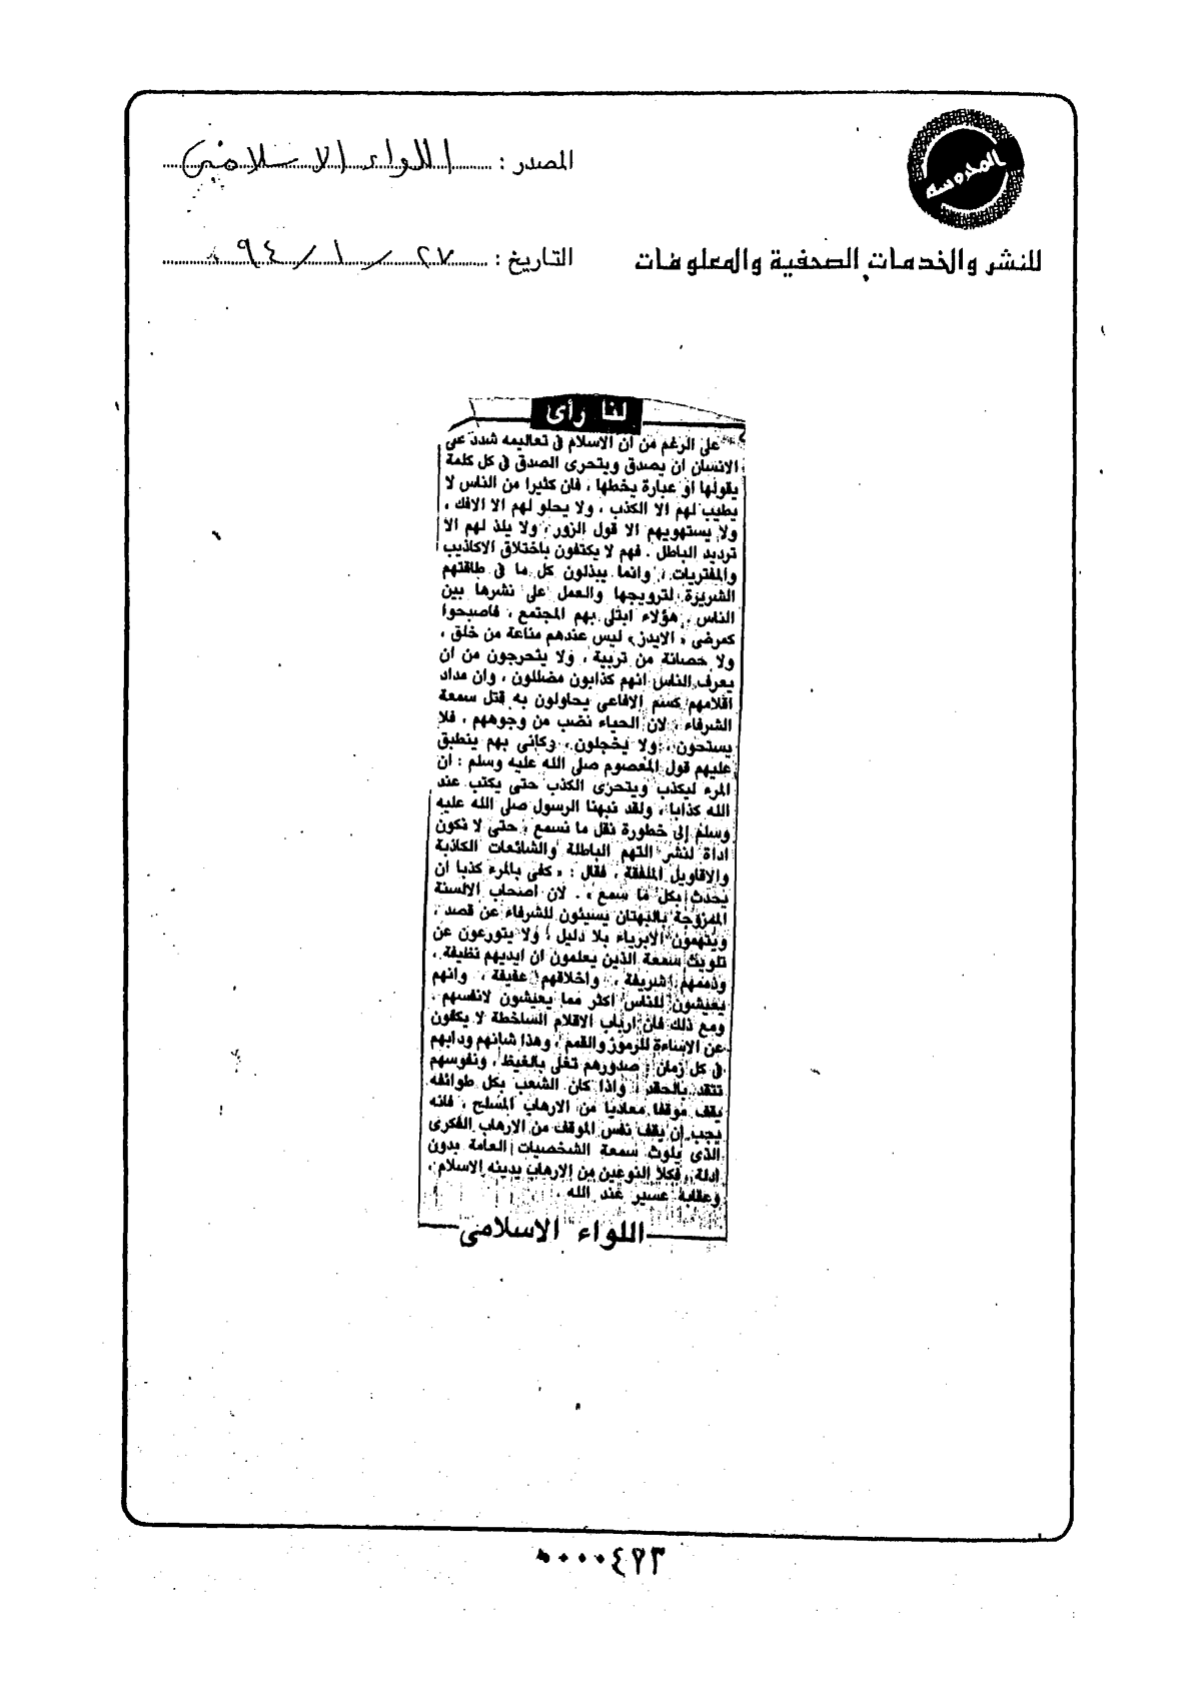 المحروسة
للنشر والخدمات الصحفية والمعلومات
المصدر : اللواء الاسلامى
التاريخ : ٢٧ / ١ / ٩٤
لنا رأى
على الرغم من ان الاسلام فى تعاليمه شدد على
الانسان ان يصدق ويتحرى الصدق فى كل كلمة
يقولها او عبارة يخطها ، فان كثيرا من الناس لا
يطيب لهم الا الكذب ، ولا يحلو لهم الا الافك ،
ولا يستهويهم الا قول الزور ، ولا يلذ لهم الا
ترديد الباطل . فهم لا يكتفون باختلاق الاكاذيب
والمفتريات ، وانما يبذلون كل ما فى طاقتهم
الشريرة لترويجها والعمل على نشرها بين
الناس . هؤلاء ابتلى بهم المجتمع ، فاصبحوا
كمرضى « الايدز » ليس عندهم مناعة من خلق ،
ولا حصانة من تربية ، ولا يتحرجون من ان
يعرف الناس انهم كذابون مضللون ، وان مداد
اقلامهم كسم الافاعى يحاولون به قتل سمعة
الشرفاء ، لان الحياء نضب من وجوههم ، فلا
يستحون ، ولا يخجلون ، وكانى بهم ينطبق
عليهم قول المعصوم صلى الله عليه وسلم : ان
المرء ليكذب ويتحرى الكذب حتى يكتب عند
الله كذابا ، ولقد نبهنا الرسول صلى الله عليه
وسلم إلى خطورة نقل ما نسمع ، حتى لا نكون
اداة لنشر التهم الباطلة والشائعات الكاذبة
والاقاويل الملفقة ، فقال : « كفى بالمرء كذبا ان
يحدث بكل ما سمع » . لان اصحاب الالسنة
الممزوجة بالبهتان يسيئون للشرفاء عن قصد ،
ويتهمون الابرياء بلا دليل ، ولا يتورعون عن
تلويث سمعة الذين يعلمون ان ايديهم نظيفة ،
وذممهم شريفة ، واخلاقهم عفيفة ، وانهم
يعيشون للناس اكثر مما يعيشون لانفسهم .
ومع ذلك فان ارباب الاقلام الساخطة لا يكفون
عن الاساءة للرموز والقمم ، وهذا شانهم ودابهم
فى كل زمان ، صدورهم تغلى بالغيظ ، ونفوسهم
تتقد بالحقد ، واذا كان الشعب بكل طوائفه
يقف موقفا معاديا من الارهاب المسلح ، فانه
يجب ان يقف نفس الموقف من الارهاب الفكرى
الذى يلوث سمعة الشخصيات العامة بدون
ادلة ، فكلا النوعين من الارهاب يدينه الاسلام ،
وعقابه عسير عند الله .
اللواء الاسلامى
٥٠٠٠٤٢٣